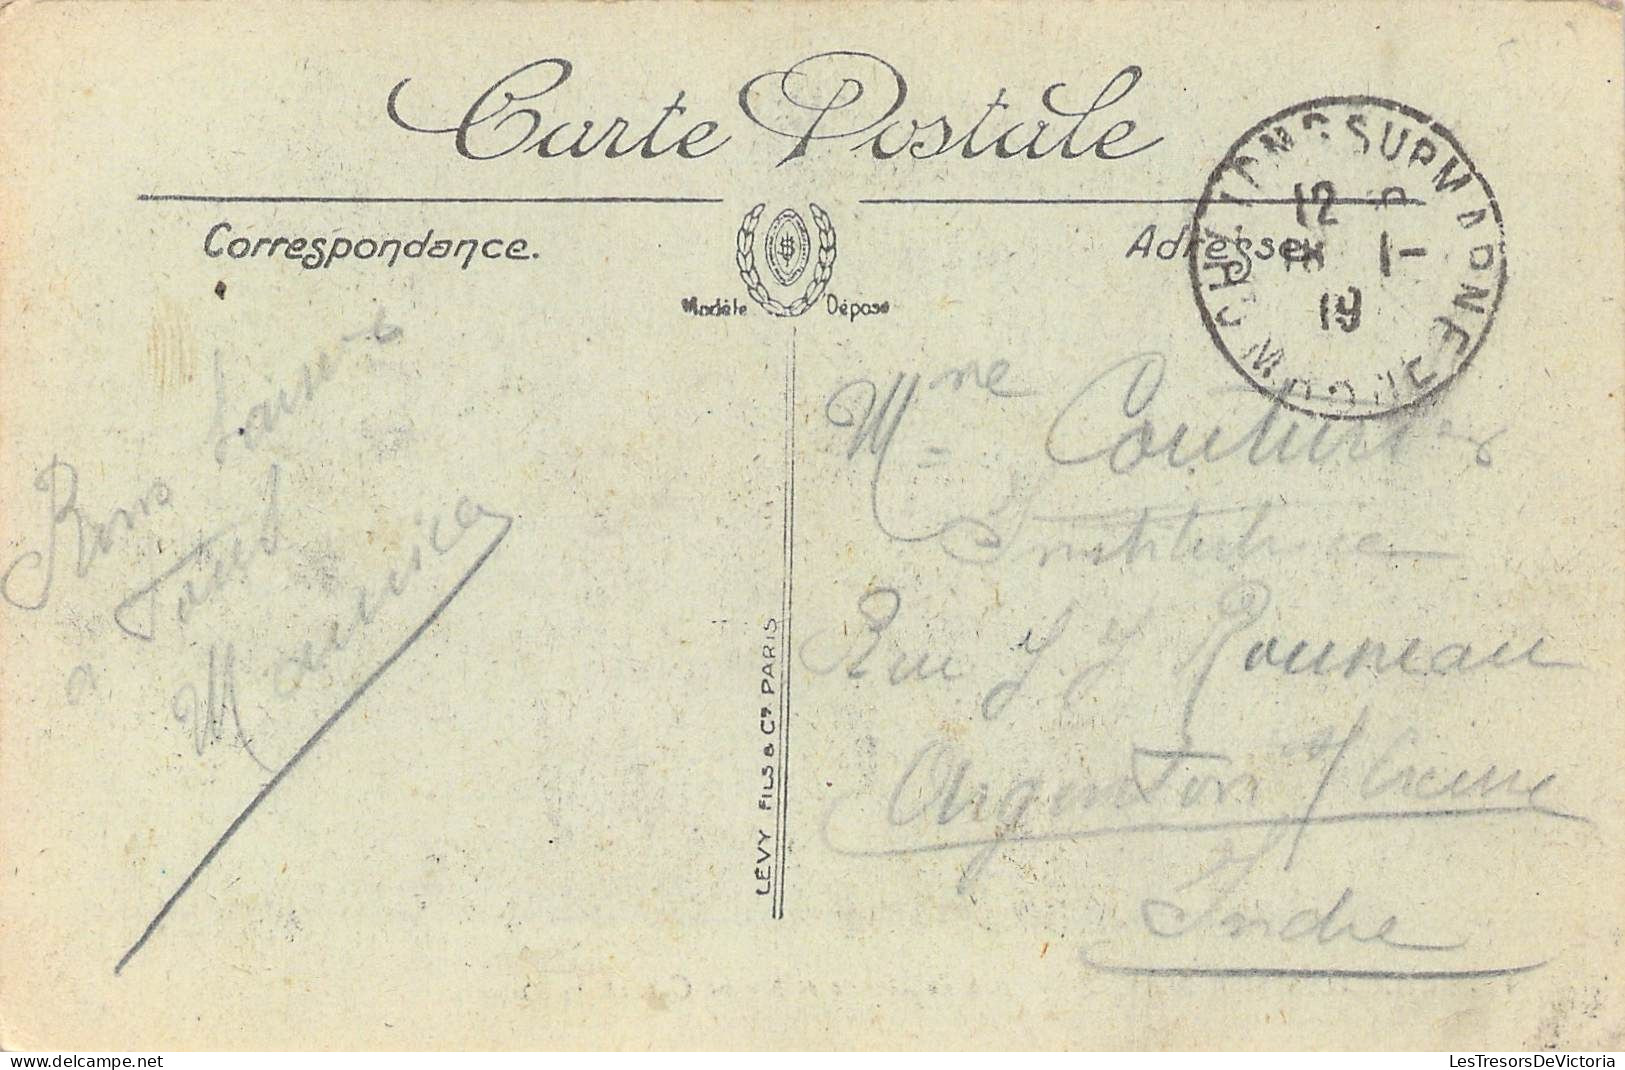 Carte Postale
Correspondance.
Adresse
Modèle Déposé
12
1
19
SUR MARNE
Bons baisers
a tous
Maurice
Mme Couturier
Institutrice
Rue J J Rousseau
Argenton s/ Creuse
Indre
LÉVY FILS & Cie PARIS
LesTresorsDeVictoria